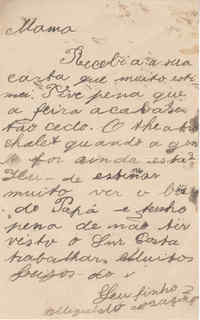 Mama
Recebi a a sua
carta que muito esti
mei. Tive pena que
a feira acabasse
tão cedo. O theatr
chalet quando a gen
for ainda está
de estiñar
muito ver o
do Papá e tenho
pena de não ter
visto o Snr Costa
trabalhar. Muitos
beijos do
Seu finho